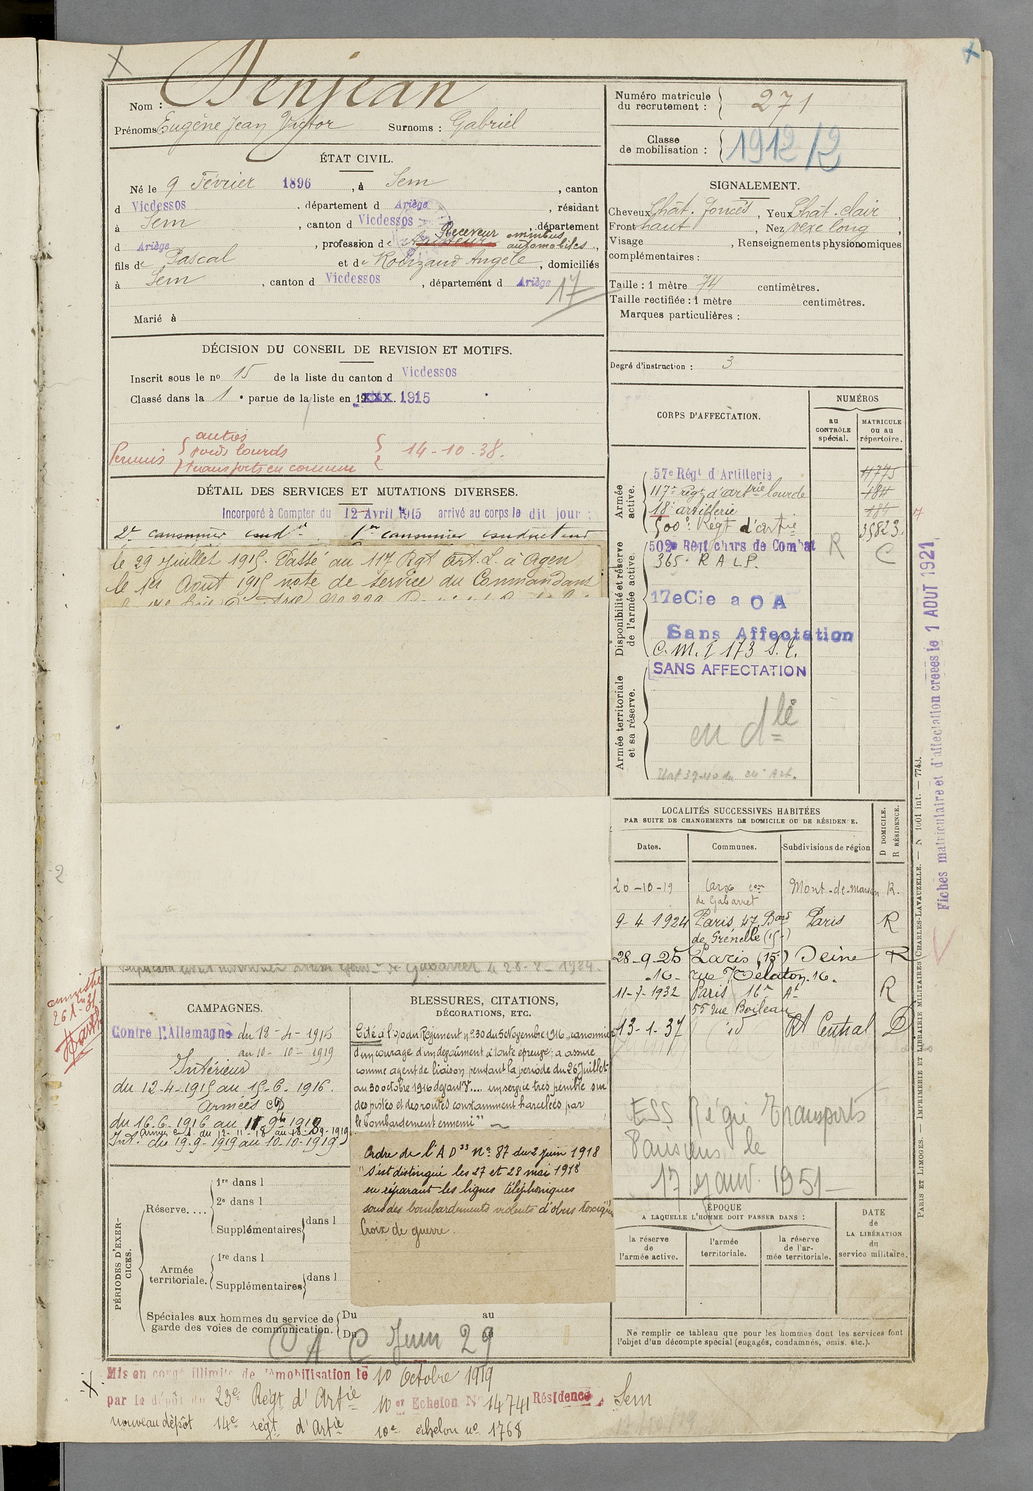 Nom : Denjean
Prénoms Eugène Jean Victor Surnoms : Gabriel
Numéro matricule
du recrutement : 271
Classe
de mobilisation : 1912/2
ÉTAT CIVIL.
Né le 9 Février 1896, à Sem, canton
d Vicdessos, département d Ariège, résidant
à Sem, canton d Vicdessos, département
d Ariège, profession d Receveur omnibus automobiles,
fils de Pascal et de Angèle, domiciliés
à Sem, canton d Vicdessos, département d Ariège
17
Marié à
SIGNALEMENT.
Cheveux Chât. foncés, Yeux Chât. clair,
Front haut, Nez vexe long,
Visage , Renseignements physionomiques
complémentaires :
Taille : 1 mètre 74 centimètres.
Taille rectifiée : 1 mètre centimètres.
Marques particulières :
Degré d'instruction : 3
DÉCISION DU CONSEIL DE REVISION ET MOTIFS.
Inscrit sous le no 15 de la liste du canton d Vicdessos
Classé dans la 1e partie de la liste en 19XXX. 1915
Permis autres
poids lourds 14-10-38.
transports en commun
DÉTAIL DES SERVICES ET MUTATIONS DIVERSES.
Incorporé à Compter du 12 Avril 1915 arrivé au corps le dit jour ;
2e canonnier condr 1er canonnier conducteur
le 29 Juillet 1915. Passé au 117 Régt Art. L. à Agen
le 1er Août 1915 note de Service du Commandant
CORPS D'AFFECTATION.
NUMÉROS
au
CONTRÔLE
spécial.
MATRICULE
ou au
répertoire.
Armée
active.
57e Régt d'Artillerie 4775
117e régt d'artrie lourde 184
18e artillerie
500e Régt d'artie 35823
Disponibilité et réserve
de l'armée active.
502e Régt chars de Combat R C
365e R A L P.
17eCie a O A
Sans Affectation
C. M. I 173 S. E.
Armée territoriale
et sa réserve.
SANS AFFECTATION
en dlé
Fiches matriculaire et d'affectation créées le 1 AOUT 1921
LOCALITÉS SUCCESSIVES HABITÉES
PAR SUITE DE CHANGEMENTS DE DOMICILE OU DE RÉSIDENCE.
Dates. Communes. Subdivisions de région
D DOMICILE.
R RÉSIDENCE.
20-10-19 de Gabarret Mont-de-marsan R.
9-4 1924 Paris, 47 Bard Paris R
de Grenelle (15e)
28-9-25 Paris (15) Seine R
16- rue Delaton. 16.
11-7-1932 Paris 16me Ar R
55 rue Boileau
13-1-37 Cid Rt Central D
ESS Régie Transports
Parisiens le
17 janv. 1951
amnistié
CAMPAGNES.
Contre l'Allemagne du 13-4-1915
au 10-10-1919
Intérieur
du 12-4-1915 au 15-6-1916.
Armées
du 16-6-1916 au
Int. du 19-9-1919 au 10-10-1919
BLESSURES, CITATIONS,
DÉCORATIONS, ETC.
Cité à l'o/o du Régiment no 30 du 5 Novembre 1916 canonnier
d'un courage d'un dévouement à toute épreuve, a assuré
comme agent de liaison pendant la période du 26 Juillet
au 30 octobre 1916 un service très pénible sur
des pistes et des routes constamment harcelées par
le bombardement ennemi"
Ordre de l'A D 33 no 87 du 2 juin 1918
"S'est distingué les 27 et 28 mai 1918
en réparant les lignes téléphoniques
sous des bombardements violents d'obus toxiques
Croix de guerre.
PÉRIODES D'EXERCICES.
Réserve....
1re dans l
2e dans l
Supplémentaires dans l
Armée
territoriale.
1re dans l
Supplémentaires dans l
Spéciales aux hommes du service de
garde des voies de communication.
Du au
Du
C A C Juin 29
ÉPOQUE
A LAQUELLE L'HOMME DOIT PASSER DANS :
la réserve
de
l'armée active.
l'armée
territoriale.
la réserve
de l'armée territoriale.
DATE
de
LA LIBÉRATION
du
service militaire.
Ne remplir ce tableau que pour les hommes dont les services font
l'objet d'un décompte spécial (engagés, condamnés, omis, etc.).
Mis en congé illimité de démobilisation le 10 Octobre 1919
par le dépôt du 23e Régt d'Artie 10e Echelon No 14741 Résidence, Sem
nouveau dépôt 14e régt d'Artie 10e échelon no 1768
PARIS ET LIMOGES. — IMPRIMERIE ET LIBRAIRIE MILITAIRES CHARLES-LAVAUZELLE. — N 1001 int. — 774).